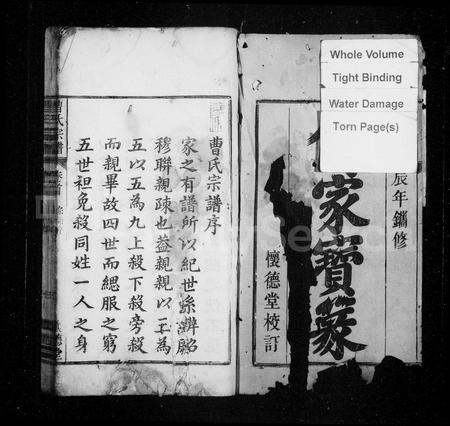 Whole Volume
Tight Binding
Water Damage
Torn Page(s)
辰年鐫修
家寶箓
懷德堂校訂
曹氏宗譜序
家之有譜所以紀世系辨昭
穆聯親疎也蓋親親以三為
五以五為九上殺下殺旁殺
而親畢故四世而緦服之窮
五世袒免殺同姓一人之身
曹氏宗譜